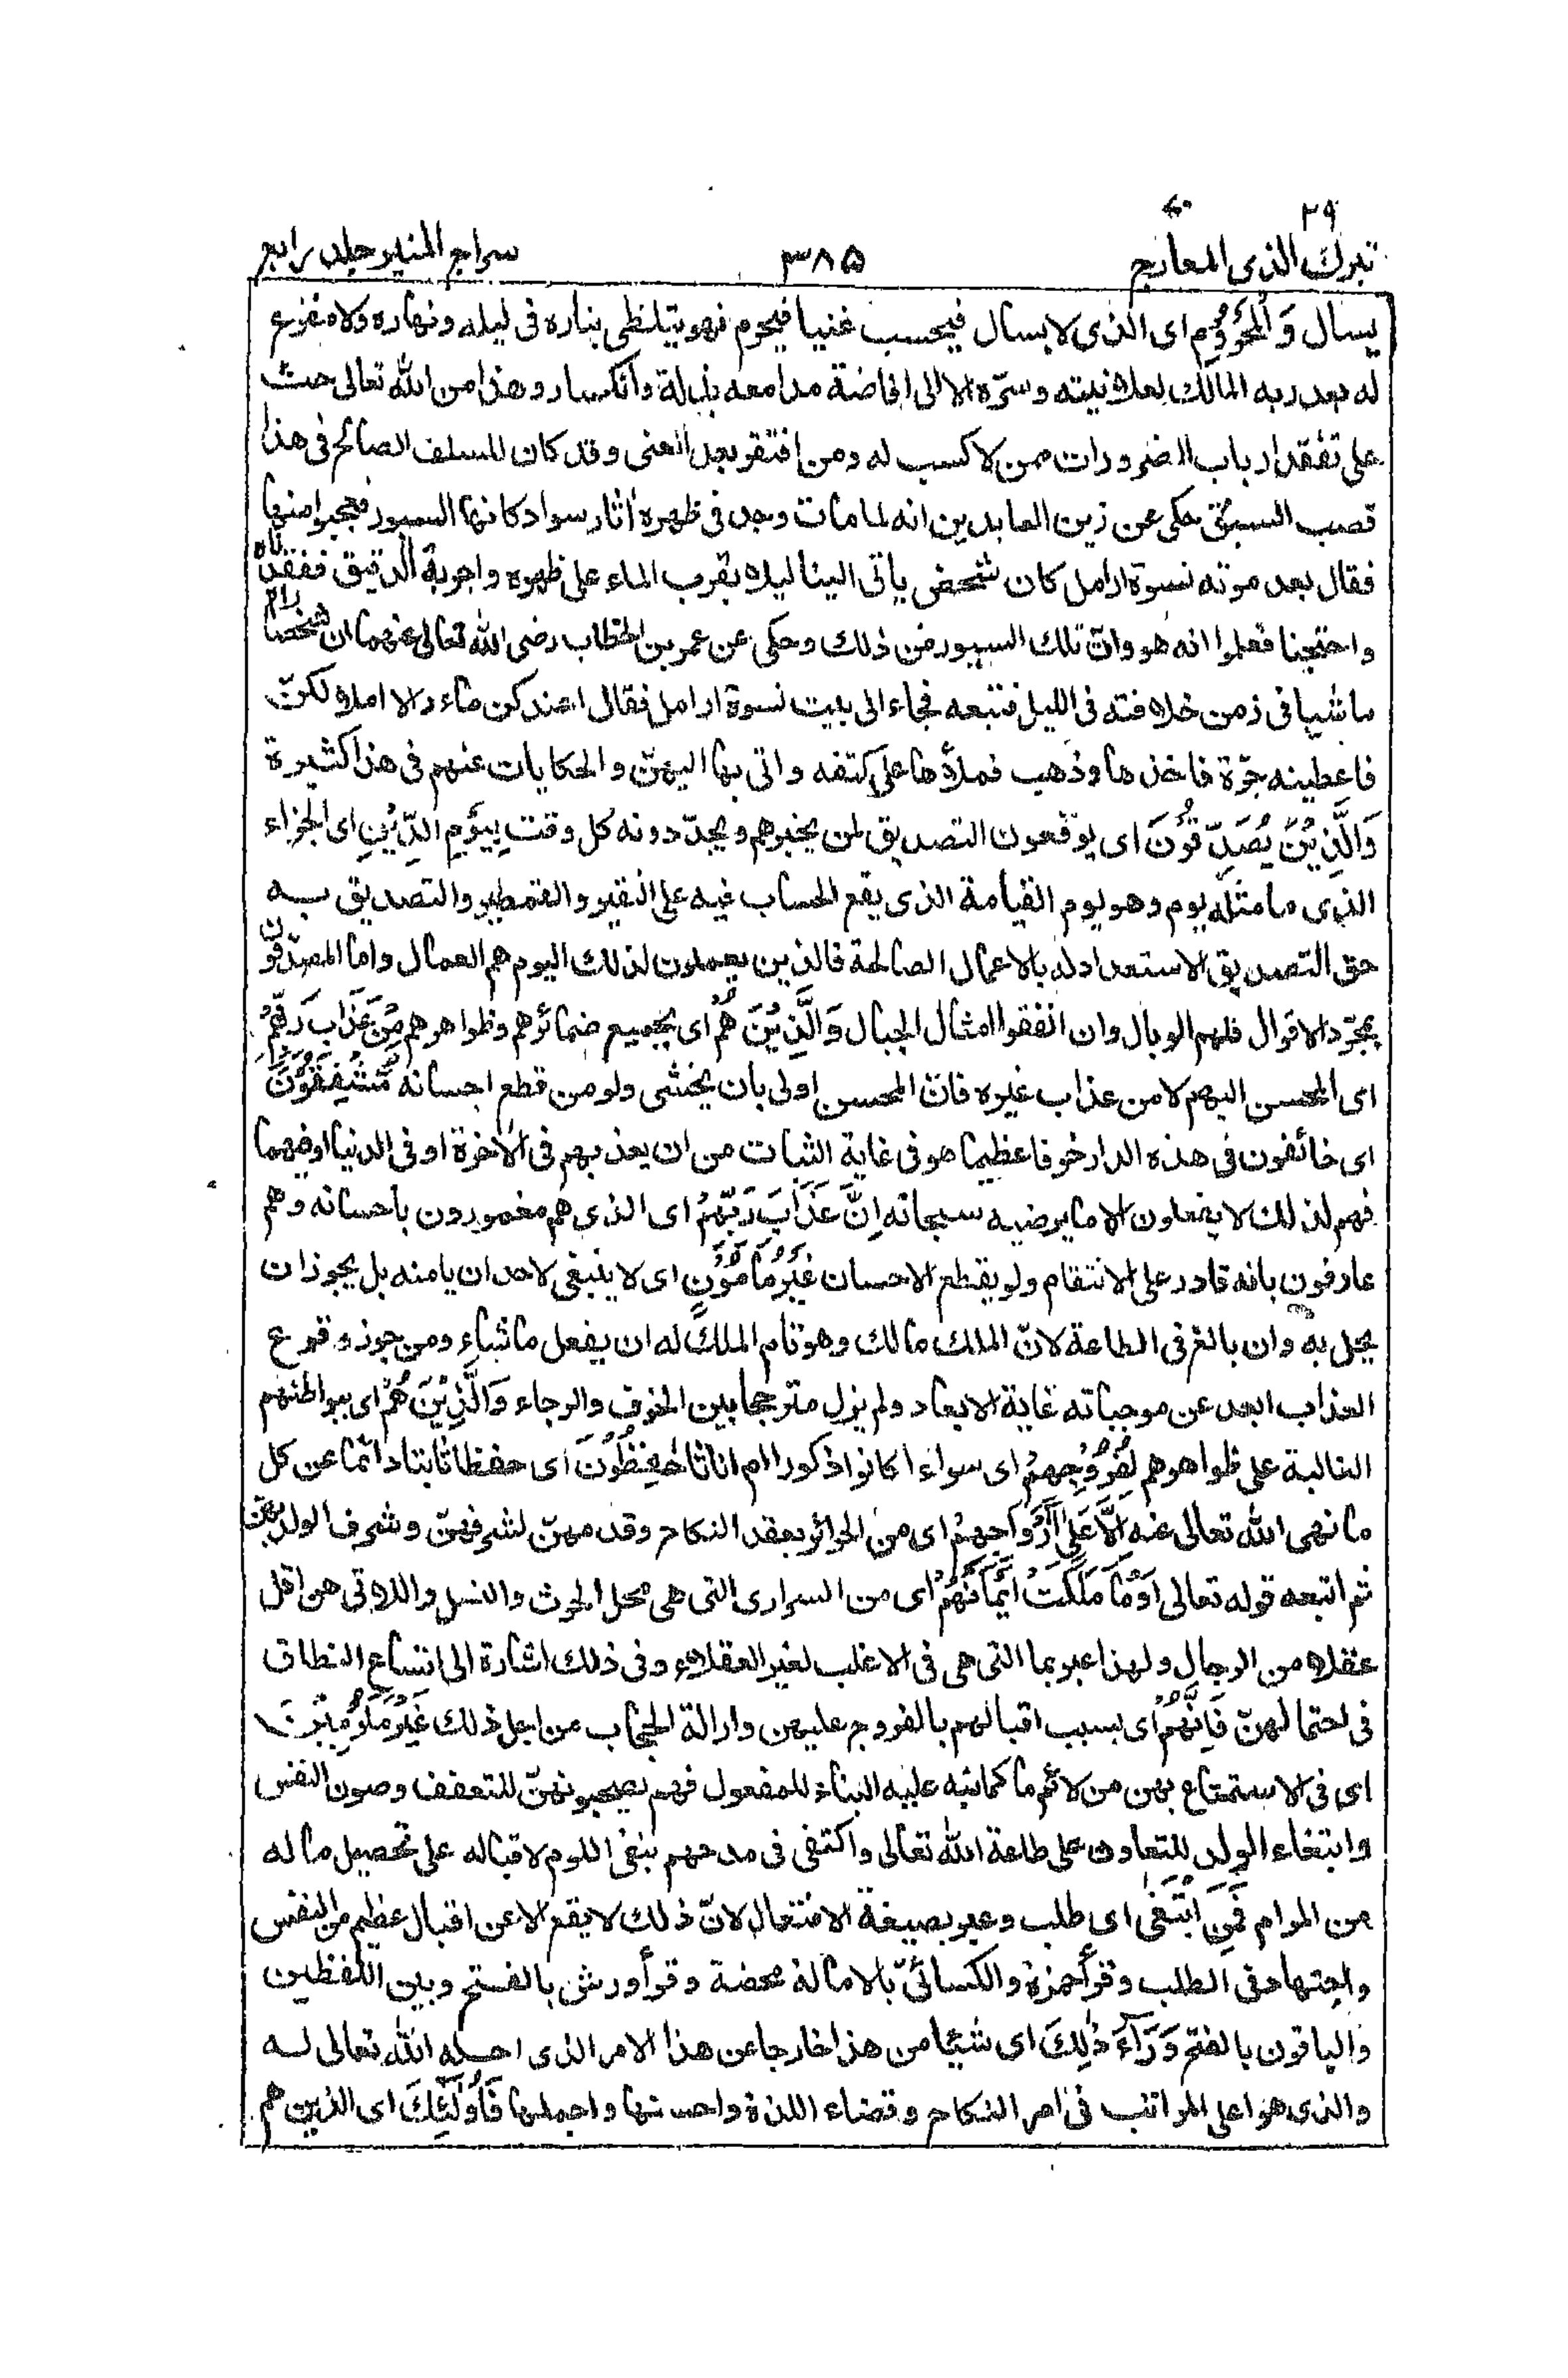 ٢٩
تبرك الذى المعارج ٣٨٥ سراج المنير جلد رابع
يسال وَالْمَحْرُوْمِ اى الذى لا يسال فيحسب غنيا فيحرم فهو يتلظى بناره فى ليله ونهاره ولا مفزع
له بعد ربه المالك لعلانيته وسرّه الا الى افاضة مدامعه بذلة وانكسار وهذا من الله تعالى حث
على تفقد ارباب الضرورات ممن لا كسب له ومن افتقر بعد الغنى وقد كان للسلف الصالح فى هذا
قصب السبق حكى عن زين العابدين انه لما مات وجد فى ظهره اثار سواد كانها السيور فعجبوا منها
فقال بعد موته نسوة ارامل كان شخص ياتى الينا ليلا بقرب الماء على ظهره واجربة الدقيق ففقدناه
واحتجنا فعلموا انه هو وان تلك السيور من ذلك وحكى عن عمر بن الخطاب رضى الله تعالى عنهما ان شخصا راه
ماشيا فى زمن خلافته فى الليل فتبعه فجاء الى بيت نسوة ارامل فقال اعندكن ماء والا املؤ لكنّ
فاعطينه جرّة فاخذها وذهب فملأها على كتفه واتى بها اليهنّ والحكايات عنهم فى هذا كثيرة
وَالَّذِيْنَ يُصَدِّقُوْنَ اى يوقعون التصديق لمن يخبرهم ويجدّدونه كل وقت بِيَوْمِ الدِّيْنِ اى الجزاء
الذى ما مثله يوم وهو يوم القيامة الذى يقع الحساب فيه على النقير والقمطير والتصديق به
حق التصديق الاستعداد له بالاعمال الصالحة فالذين يعملون لذلك اليوم هم العمال واما المصدّقون
بمجرّد الاقوال فلهم الوبال وان انفقوا امثال الجبال وَالَّذِيْنَ هُمْ اى بجميع ضمائرهم وظواهرهم مِّنْ عَذَابِ رَبِّهِمْ
اى المحسن اليهم لا من عذاب غيره فان المحسن اولى بان يخشى ولو من قطع احسانه مُّشْفِقُوْنَ
اى خائفون فى هذه الدار خوفا عظيما هو فى غاية الثبات من ان يعذبهم فى الاخرة او فى الدنيا او فيهما
فهم لذلك لا يفعلون الا ما يرضيه سبحانه اِنَّ عَذَابَ رَبِّهِمْ اى الذى هم مغمورون باحسانه وهم
عارفون بانه قادر على الانتقام ولو بقطع الاحسان غَيْرُ مَأْمُوْنٍ اى لا ينبغى لاحد ان يامنه بل يجوز ان
يحل به وان بالغ فى الطاعة لانّ الملك مالك وهو تام الملك له ان يفعل ما شاء ومن جوز وقوع
العذاب ابعد عن موجباته غاية الابعاد ولم يزل مترجحا بين الخوف والرجاء وَالَّذِيْنَ هُمْ اى ببواطنهم
الغالبة على ظواهرهم لِفُرُوْجِهِمْ اى سواء ا كانوا ذكورا ام اناثا حٰفِظُوْنَ اى حفظا ثابتا دائما عن كل
ما نهى الله تعالى عنه اِلَّا عَلٰٓى اَزْوَاجِهِمْ اى من الحرائر بعقد النكاح وقدمهنّ لشرفهنّ وشرف الولد بهنّ
ثم اتبعه قوله تعالى اَوْ مَا مَلَكَتْ اَيْمَانُهُمْ اى من السرارى التى هى محل الحرث والنسل واللاتى هن اقل
عقلا من الرجال ولهذا عبر بما التى هى فى الاغلب لغير العقلاء وفى ذلك اشارة الى اتساع النطاق
فى احتمالهنّ فَاِنَّهُمْ اى بسبب اقبالهم بالفروج عليهن وازالة الحجاب من اجل ذلك غَيْرُ مَلُوْمِيْنَ
اى فى الاستمتاع بهن من لائم ما كما نبه عليه البناء للمفعول فهم يصحبونهنّ للتعفف وصون النفس
وابتغاء الولد للتعاون على طاعة الله تعالى واكتفى فى مدحهم بنفى اللوم لاقباله على تحصيل ماله
من المرام فَمَنِ ابْتَغٰى اى طلب وعبر بصيغة الافتعال لانّ ذلك لا يقع الا عن اقبال عظيم من النفس
واجتهاد فى الطلب وقرأ حمزة والكسائىّ بالامالة محضة وقرأ ورش بالفتح وبين اللفظين
والباقون بالفتح وَرَآءَ ذٰلِكَ اى شيئا من هذا خارجا عن هذا الامر الذى احله الله تعالى له
والذى هو اعلى المراتب فى امر النكاح وقضاء اللذة واحسنها واجملها فَاُولٰٓئِكَ اى الذين هم